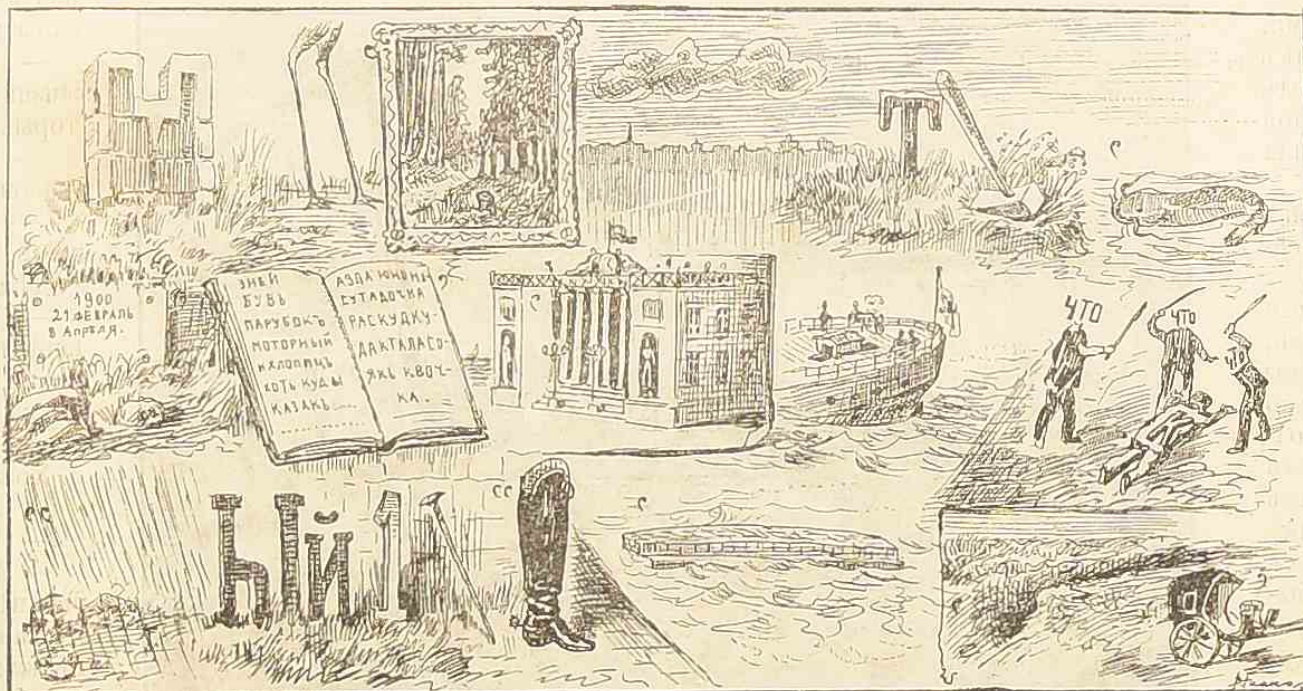 Т
1900
21 ФЕВРАЛЬ
8 АПРѢЛЯ.
ЭНЕЙ
БУВЪ
ПАРУБОКЪ
МОТОРНЫЙ
И ХЛОПИЦЪ
ХОТЬ КУДЫ
КАЗАКЪ....
СУТАДОЧКА
РАСКУДКУ-
ДАКТАЛАСО-
ЯКЪ КВОЧ-
КА.
ЧТО
ЧТО
ЫЙ1